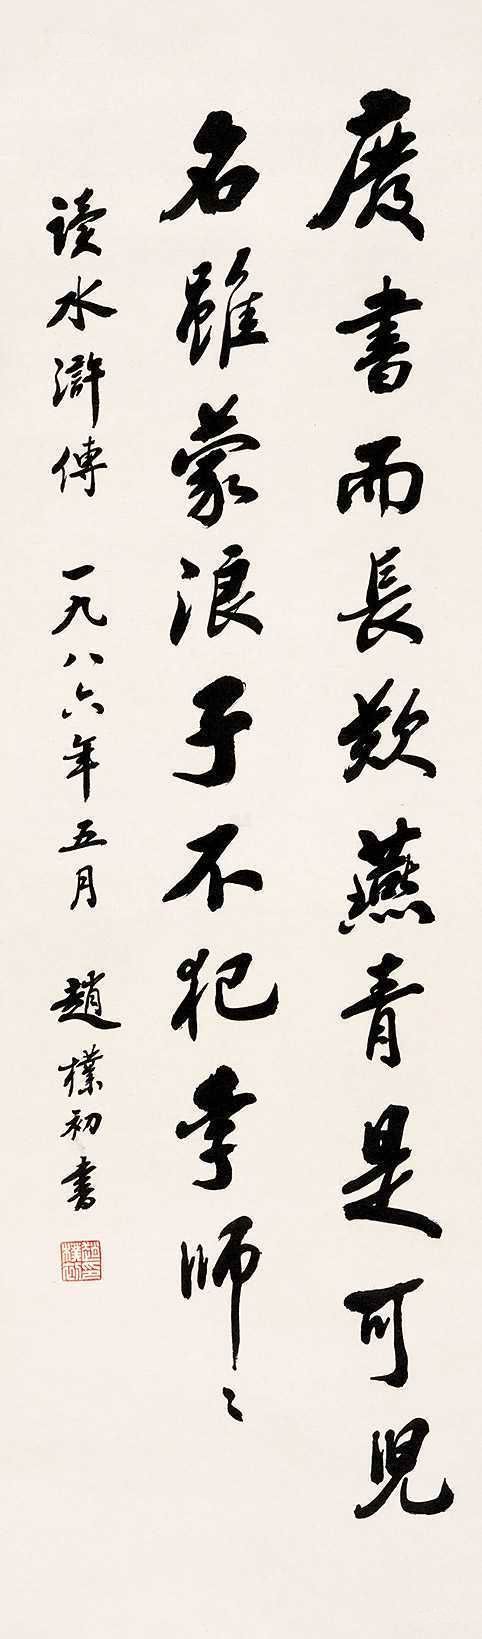 廢書而長歎燕青是可兒
名雖蒙浪子不犯李師々
读水滸傳 一九八六年五月 趙樸初書